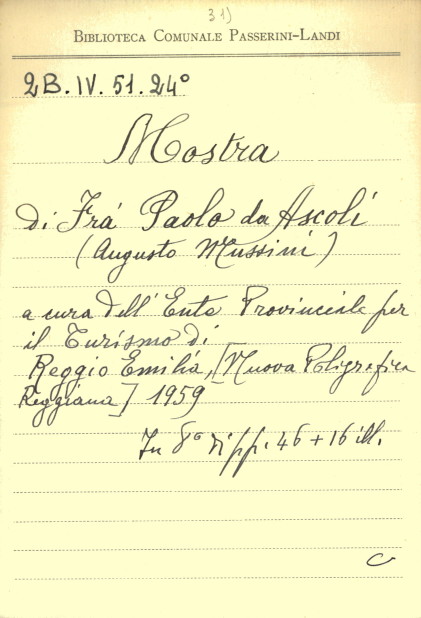 31)
BIBLIOTECA COMUNALE PASSERINI-LANDI
2B.IV.51.24°
Mostra
di Frá Paolo da Ascoli
(Augusto Mussini)
a cura dell'Ente Provinciale per
il Turismo di
Reggio Emilia, [Nuova Poligrafica
Reggiana] 1959
In 8° di pp. 46 + 16 ill.
C